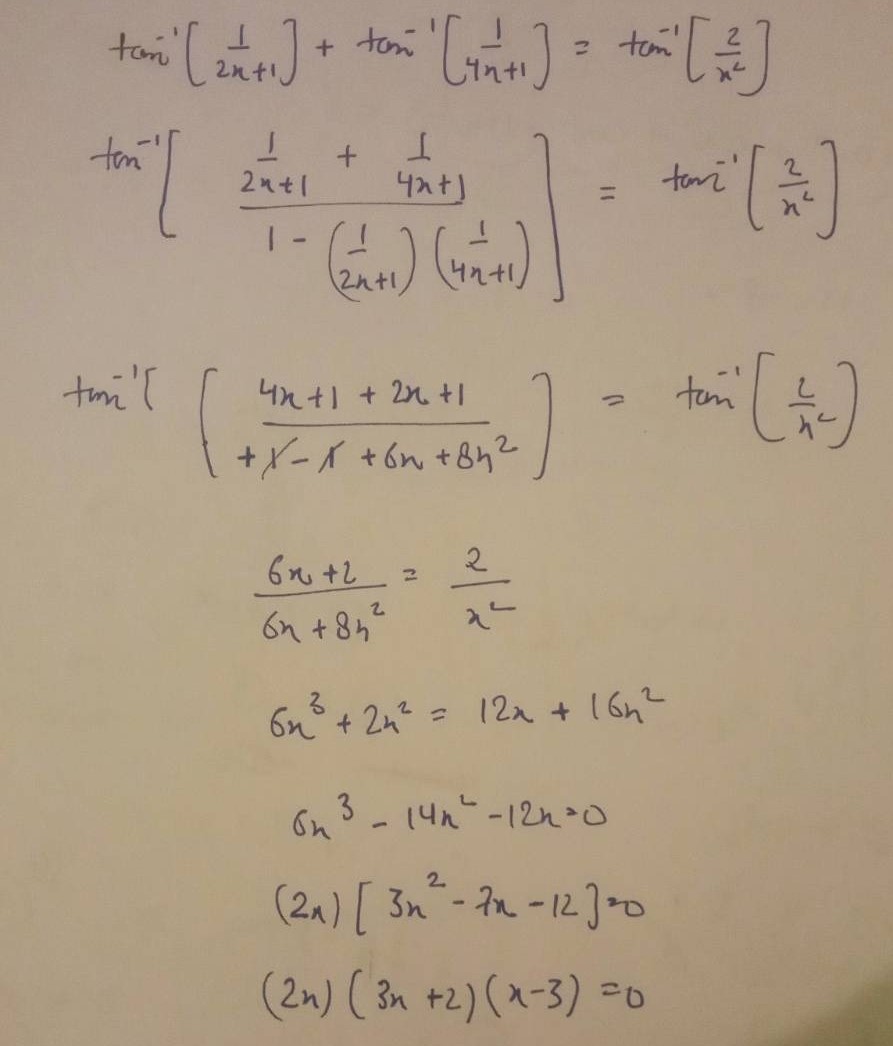 tan⁻¹[1/(2x+1)] + tan⁻¹[1/(4x+1)] = tan⁻¹[2/x²]
tan⁻¹[(1/(2x+1) + 1/(4x+1))/(1 - (1/(2x+1))(1/(4x+1)))] = tan⁻¹[2/x²]
tan⁻¹[[(4x+1 + 2x+1)/(+1-1+6x+8x²)] = tan⁻¹[2/x²)
(6x+2)/(6x+8x²) = 2/x²
6x³ + 2x² = 12x + 16x²
6x³ - 14x² - 12x = 0
(2x)[3x² - 7x - 12] = 0
(2x)(3x+2)(x-3) = 0